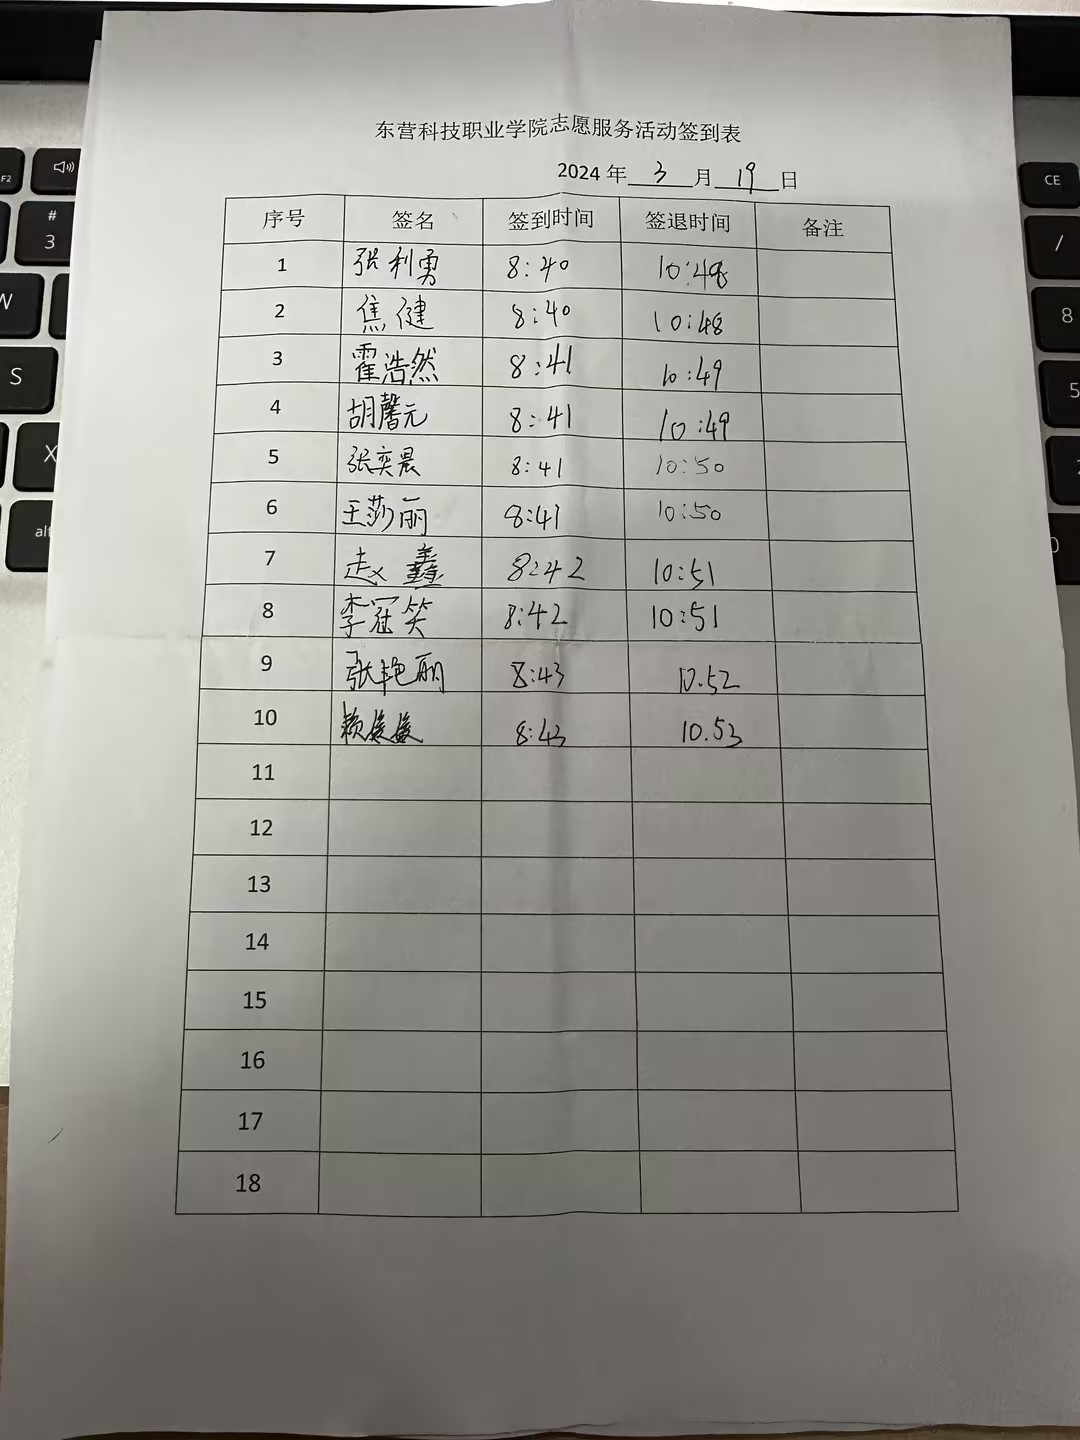 东营科技职业学院志愿服务活动签到表
2024 年 3 月 19 日
序号 签名 签到时间 签退时间 备注
1 张利勇 8:40 10:48
2 焦健 8:40 10:48
3 霍浩然 8:41 10:49
4 胡馨元 8:41 10:49
5 张奕晨 8:41 10:50
6 王莎丽 8:41 10:50
7 赵鑫 8:42 10:51
8 李冠笑 8:42 10:51
9 张艳丽 8:43 10.52
10 赖媛媛 8:43 10.53
11
12
13
14
15
16
17
18